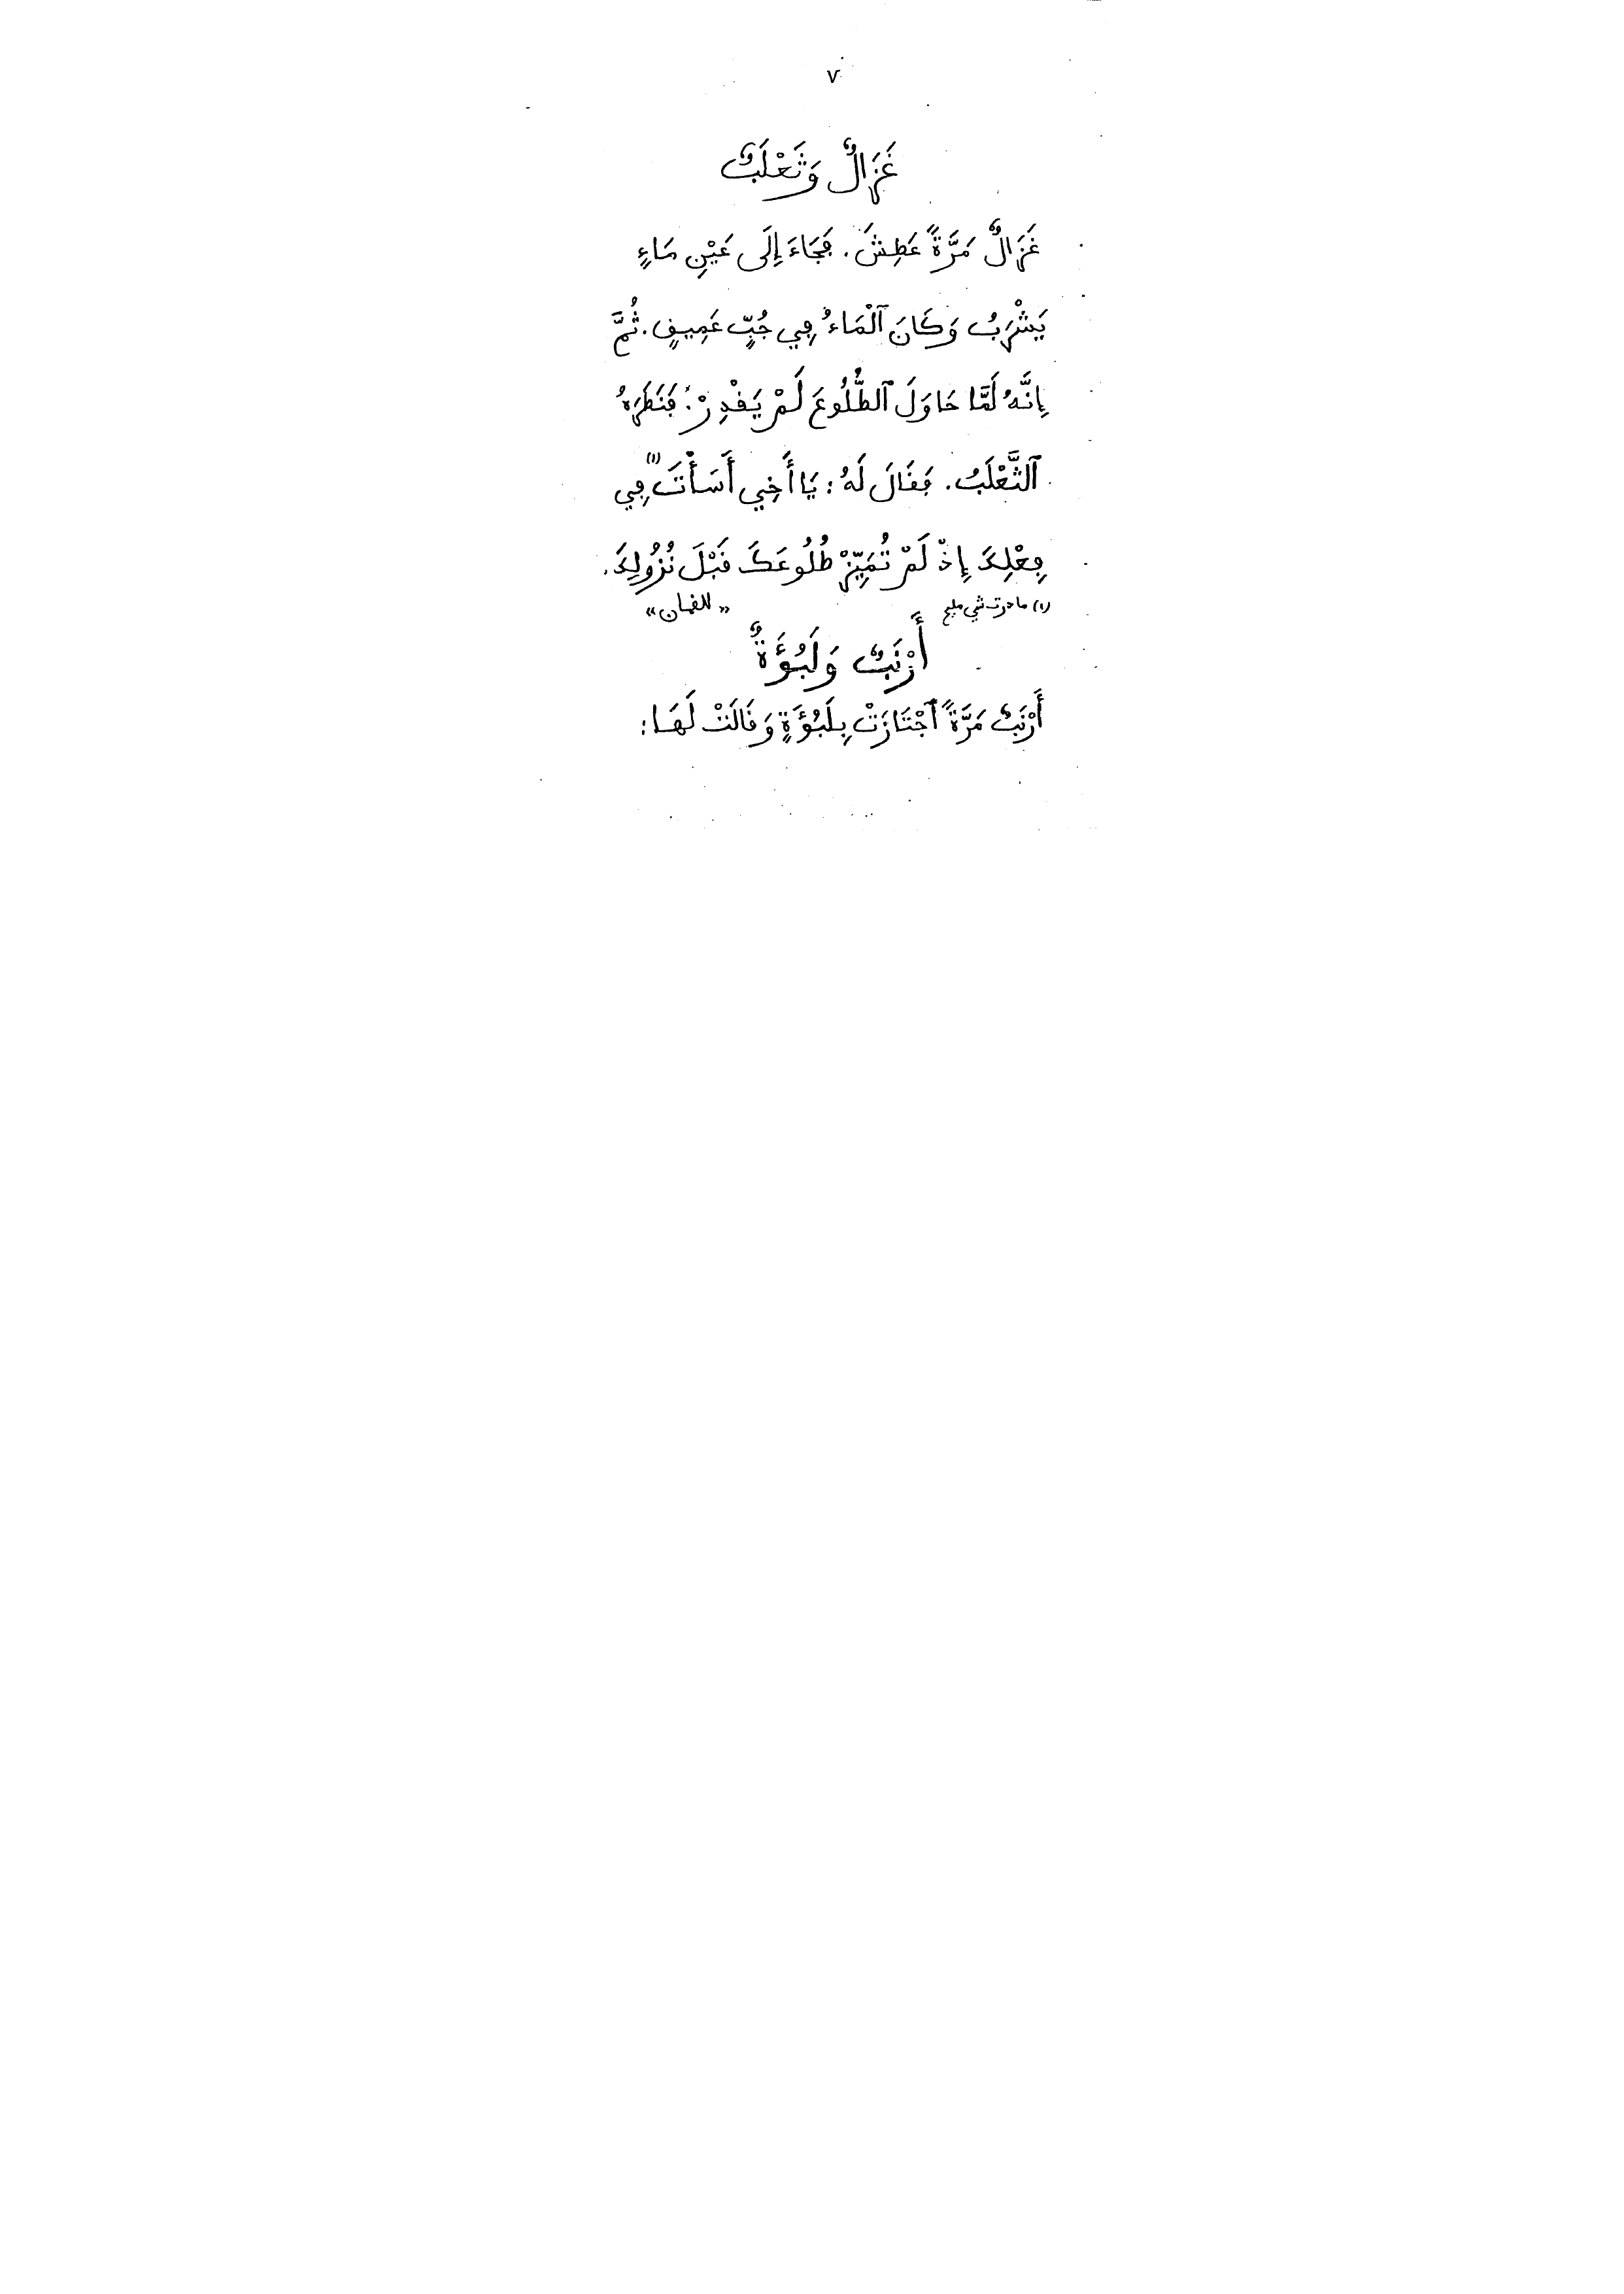 ٧
غَزَالٌ وَثَعْلَبٌ
غَزَالٌ مَرَّةً عَطِشَ. ڢَجَاءَ إِلَى عَيْنِ مَاءٍ
يَشْرَبُ وَكَانَ ٱلْمَاءُ ڢِي جُبٍّ عَمِيفٍ. ثُمَّ
إِنَّهُ لَمَّا حَاوَلَ ٱلطُّلُوعَ لَمْ يَفْدِرْ. ڢَنَظَرَهُ
ٱلثَّعْلَبُ. ڢَفَالَ لَهُ: يَا أَخِي أَسَأْتَ (١) ڢِي
ڢِعْلِكَ إِذْ لَمْ تُمَيِّزْ طُلُوعَكَ فَبْلَ نُزُولِكَ.
(١) مادرت شي مليح «للفمان»
أَرْنَبٌ وَلَبُؤَةٌ
أَرْنَبٌ مَرَّةً ٱجْتَازَتْ بِلَبُؤَةٍ وَفَالَتْ لَهَا: